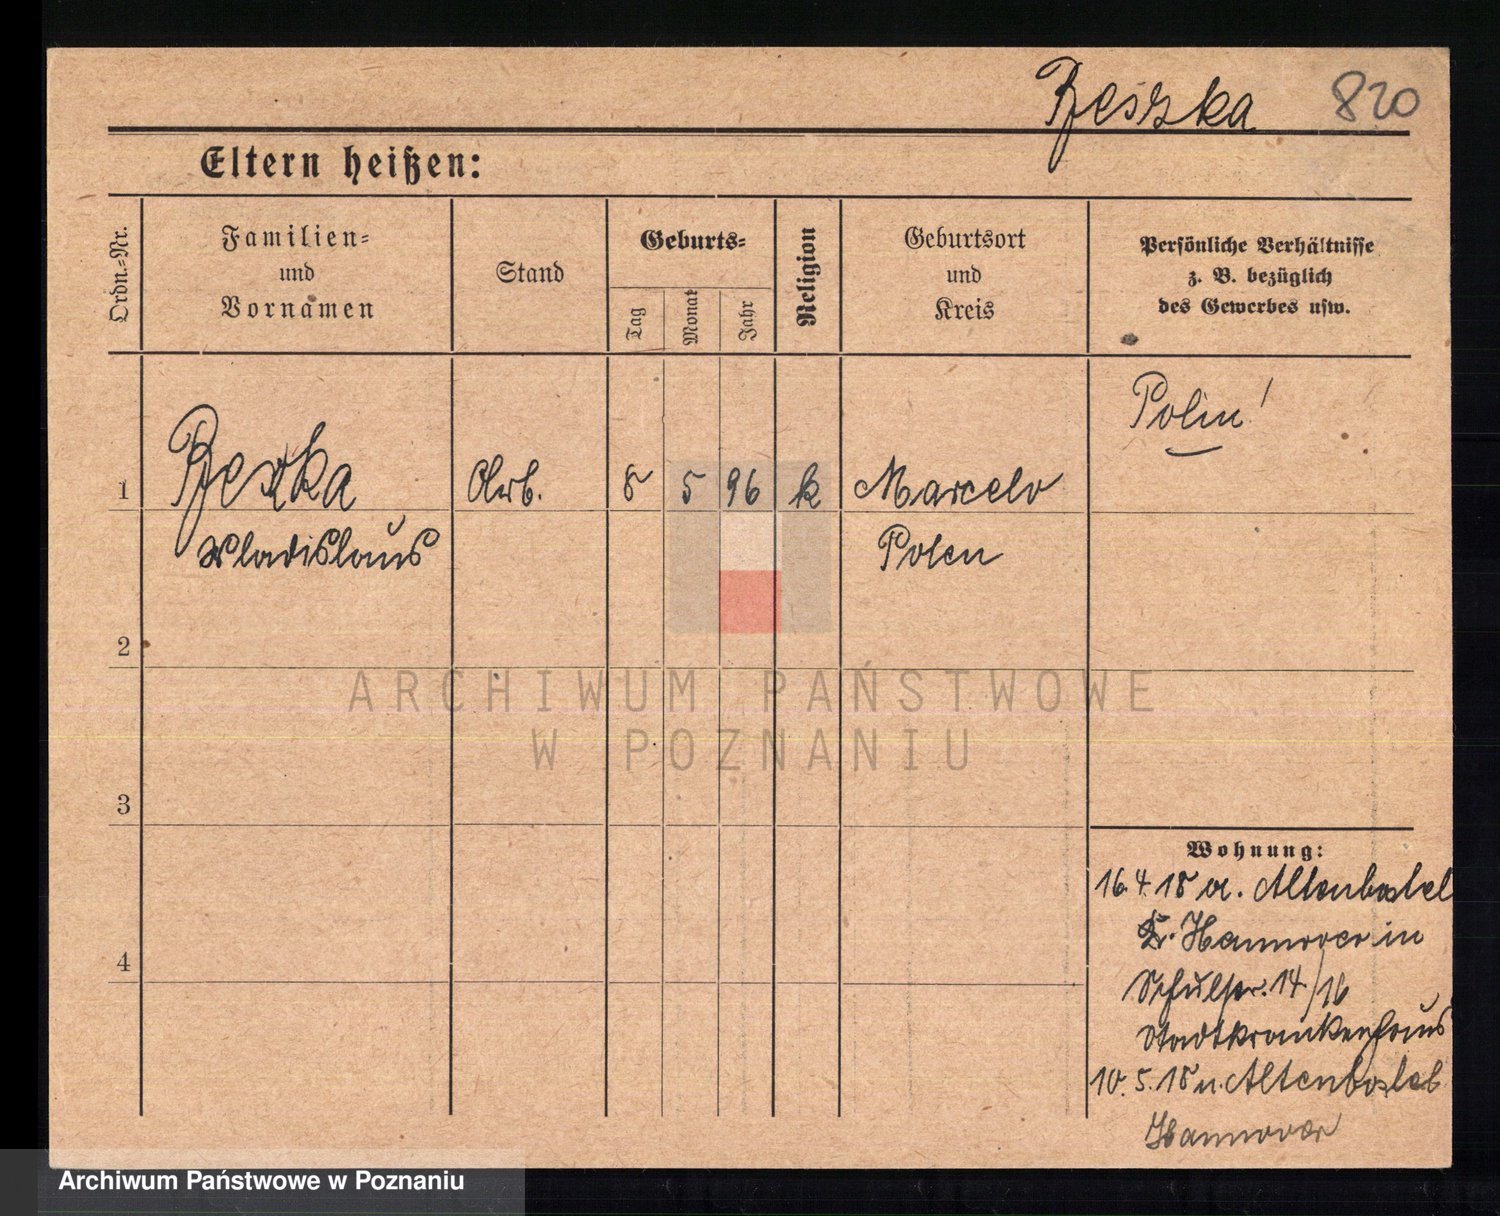 Rzeszka 820
Eltern heißen:
Ordn.-Nr.
Familien-
und
Vornamen
Stand
Geburts-
Tag
Monat
Jahr
Religion
Geburtsort
und
Kreis
Persönliche Verhältnisse
z. B. bezüglich
des Gewerbes usw.
Arb. 8 5 96 k Marcelo
Wladislaus Polen
1
2
3
4
ARCHIWUM PAŃSTWOWE
W POZNANIU
Wohnung:
16.4.18 v. Altenbostel
Kr. Hannover in
Schulstr. 14/16
Stadtkrankenhaus
10.5.18 n. Altenbostel
Hannover
Archiwum Państwowe w Poznaniu